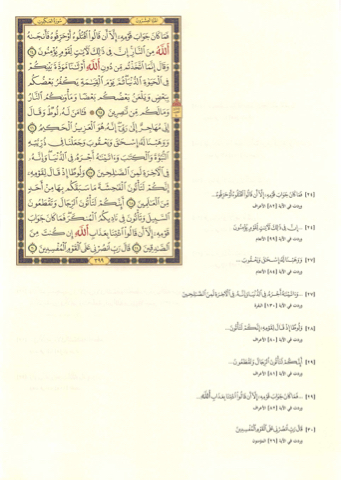 فَمَا كَانَ جَوَابَ قَوْمِهِۦٓ إِلَّآ أَن قَالُوا۟ ٱقْتُلُوهُ أَوْ حَرِّقُوهُ فَأَنجَىٰهُ
ٱللَّهُ مِنَ ٱلنَّارِ إِنَّ فِى ذَٰلِكَ لَءَايَٰتٍ لِّقَوْمٍ يُؤْمِنُونَ ٢٤
وَقَالَ إِنَّمَا ٱتَّخَذْتُم مِّن دُونِ ٱللَّهِ أَوْثَٰنًا مَّوَدَّةَ بَيْنِكُمْ
فِى ٱلْحَيَوٰةِ ٱلدُّنْيَا ثُمَّ يَوْمَ ٱلْقِيَٰمَةِ يَكْفُرُ بَعْضُكُم
بِبَعْضٍ وَيَلْعَنُ بَعْضُكُم بَعْضًا وَمَأْوَىٰكُمُ ٱلنَّارُ
وَمَا لَكُم مِّن نَّٰصِرِينَ ٢٥ ۞ فَـَٔامَنَ لَهُۥ لُوطٌ وَقَالَ
إِنِّى مُهَاجِرٌ إِلَىٰ رَبِّىٓ إِنَّهُۥ هُوَ ٱلْعَزِيزُ ٱلْحَكِيمُ ٢٦
وَوَهَبْنَا لَهُۥٓ إِسْحَٰقَ وَيَعْقُوبَ وَجَعَلْنَا فِى ذُرِّيَّتِهِ
ٱلنُّبُوَّةَ وَٱلْكِتَٰبَ وَءَاتَيْنَٰهُ أَجْرَهُۥ فِى ٱلدُّنْيَا وَإِنَّهُۥ
فِى ٱلْءَاخِرَةِ لَمِنَ ٱلصَّٰلِحِينَ ٢٧ وَلُوطًا إِذْ قَالَ لِقَوْمِهِۦٓ
إِنَّكُمْ لَتَأْتُونَ ٱلْفَٰحِشَةَ مَا سَبَقَكُم بِهَا مِنْ أَحَدٍ
مِّنَ ٱلْعَٰلَمِينَ ٢٨ أَئِنَّكُمْ لَتَأْتُونَ ٱلرِّجَالَ وَتَقْطَعُونَ
ٱلسَّبِيلَ وَتَأْتُونَ فِى نَادِيكُمُ ٱلْمُنكَرَ فَمَا كَانَ جَوَابَ
قَوْمِهِۦٓ إِلَّآ أَن قَالُوا۟ ٱئْتِنَا بِعَذَابِ ٱللَّهِ إِن كُنتَ مِنَ
ٱلصَّٰدِقِينَ ٢٩ قَالَ رَبِّ ٱنصُرْنِى عَلَى ٱلْقَوْمِ ٱلْمُفْسِدِينَ ٣٠
٣٩٩
[٢٤] فَمَا كَانَ جَوَابَ قَوْمِهِۦٓ إِلَّآ أَن قَالُوا۟ ٱقْتُلُوهُ أَوْ حَرِّقُوهُ...
وردت في الآية [٨٢] الأعراف
[٢٤] ...إِنَّ فِى ذَٰلِكَ لَءَايَٰتٍ لِّقَوْمٍ يُؤْمِنُونَ
وردت في الآية [٩٩] الأنعام
[٢٧] وَوَهَبْنَا لَهُۥٓ إِسْحَٰقَ وَيَعْقُوبَ...
وردت في الآية [٨٤] الأنعام
[٢٧] ...وَءَاتَيْنَٰهُ أَجْرَهُۥ فِى ٱلدُّنْيَا وَإِنَّهُۥ فِى ٱلْءَاخِرَةِ لَمِنَ ٱلصَّٰلِحِينَ
وردت في الآية [١٣٠] البقرة
[٢٨] وَلُوطًا إِذْ قَالَ لِقَوْمِهِۦٓ إِنَّكُمْ لَتَأْتُونَ...
وردت في الآية [٨٠] الأعراف
[٢٩] أَئِنَّكُمْ لَتَأْتُونَ ٱلرِّجَالَ وَتَقْطَعُونَ...
وردت في الآية [٨١] الأعراف
[٢٩] ...فَمَا كَانَ جَوَابَ قَوْمِهِۦٓ إِلَّآ أَن قَالُوا۟ ٱئْتِنَا بِعَذَابِ ٱللَّهِ...
وردت في الآية [٨٢] الأعراف
[٣٠] قَالَ رَبِّ ٱنصُرْنِى عَلَى ٱلْقَوْمِ ٱلْمُفْسِدِينَ
وردت في الآية المؤمنون